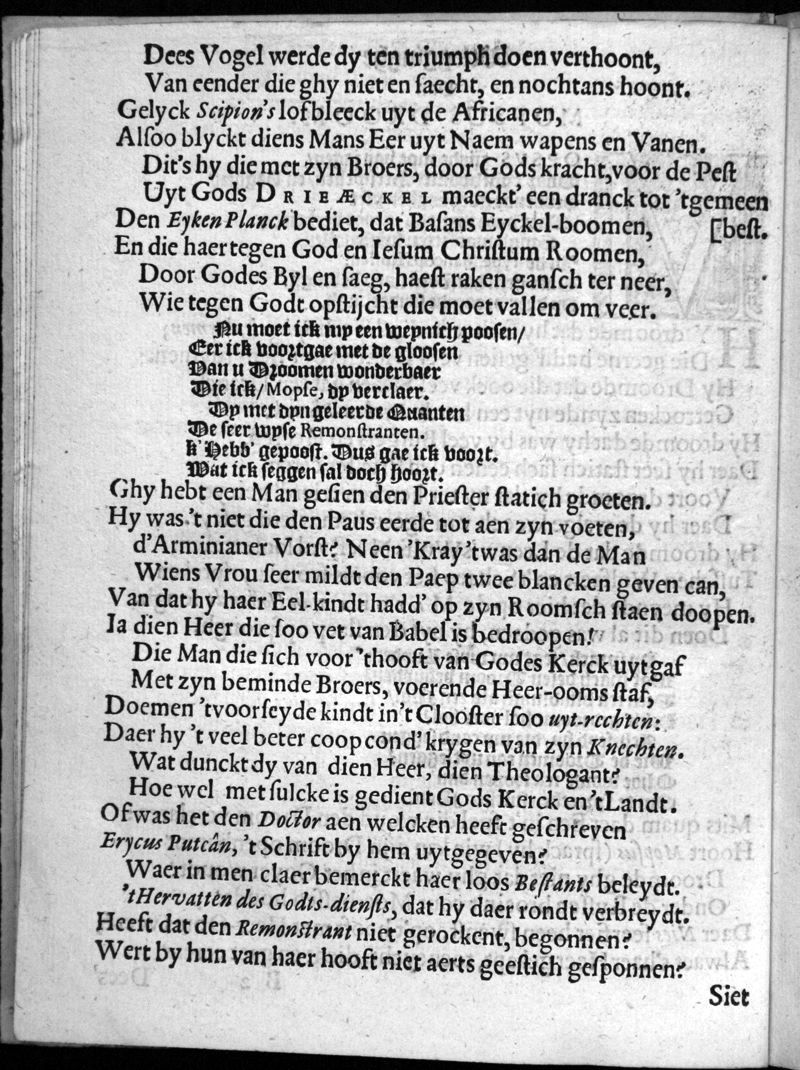 Dees Vogel werde dy ten triumph doen verthoont,
Van eender die ghy niet en ſaecht, en nochtans hoont.
Gelyck Scipion's lof bleeck uyt de Africanen,
Alſoo blyckt diens Mans Eer uyt Naem wapens en Vanen.
Dit's hy die met zyn Broers, door Gods kracht, voor de Peſt
Uyt Gods DRIEÆCKEL maeckt' een dranck tot 'tgemeen
Den Eyken Planck bediet, dat Baſans Eyckel-boomen, [beſt.
En die haer tegen God en Ieſum Chriſtum Roomen,
Door Godes Byl en ſaeg, haeſt raken ganſch ter neer,
Wie tegen Godt opſtijcht die moet vallen om veer.
Nu moet ick my een weynich poosen/
Eer ick voortgae met de glooſen
Van u Droomen wonderbaer
Die ick/ Mopſe, dy verclaer.
Dy met dyn geleerde Quanten
De ſeer wyſe Remonſtranten.
k' Hebb' gepooſt. Dus gae ick voort.
Wat ick ſeggen ſal doch hoort.
Ghy hebt een Man geſien den Prieſter ſtatich groeten.
Hy was 't niet die den Paus eerde tot aen zyn voeten,
d'Arminianer Vorſt? Neen 'Kray 'twas dan de Man
Wiens Vrou ſeer mildt den Paep twee blancken geven can,
Van dat hy haer Eel-kindt hadd' op zyn Roomſch ſtaen doopen.
Ja dien Heer die ſoo vet van Babel is bedroopen!
Die Man die ſich voor 'thooft van Godes Kerck uytgaf
Met zyn beminde Broers, voerende Heer-ooms ſtaf,
Doemen 'tvoorſeyde kindt in't Clooſter ſoo uyt-rechten:
Daer hy 't veel beter coop cond' krygen van zyn Knechten.
Wat dunckt dy van dien Heer, dien Theologant?
Hoe wel met ſulcke is gedient Gods Kerck en 'tLandt.
Of was het den Doctor aen welcken heeft geſchreven
Erycus Puteân, 't Schrift by hem uytgegeven?
Waer in men claer bemerckt haer loos Beſtants beleydt.
'tHervatten des Godts-dienſts, dat hy daer rondt verbreydt.
Heeft dat den Remonſtrant niet gerockent, begonnen?
Wert by hun van haer hooft niet aerts geeſtich geſponnen?
Siet